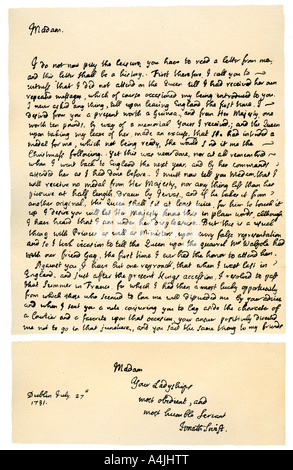 Madam.
I do not now pity the leisure you have to read a letter from me,
and this letter shall be a history. First therefore I call you to
witness that I did not attend on the Queen till I had received her own
repeated messages, which of course occasioned my being introduced to you.
I never asked any thing, till upon leaving England the first time, I
desired from you a present worth a guinea, and from Her Majesty one
worth ten pounds, by way of a memorial. Yours I received; and the Queen
upon taking my leave of her, made an excuse, that she had intended a
medal for me, which not being ready, she would send it me the
Christmas following. Yet this was never done, nor at all remembred
when I went back to England the next year, and by her commands
attended her as I had done before. I must now tell you Madam, that I
will receive no medal from Her Majesty, nor any thing less than her
picture at half length drawn by Jervas, and if he takes it from
another original, the Queen shall sit at least twice, for him to touch it
up. I desire you will let Her Majesty know this in plain words, although
I have heard that I am under her displeasure. But this is a usual
thing with Princes as well as Ministers upon every false representation
and so I took occasion to tell the Queen upon the quarrel Mr Walpole had
with our friend Gay, the first time I ever had the honor to attend her.
Against you I have but one reproach, that when I was last in
England, and just after the present Kings accession, I resolved to pass
that Summer in France, for which I had then a most lucky opportunity,
from which those who seemed to love me well dissuaded me by your advice
and when I sent you a note conjuring you to lay aside the character of
a Courtier and a favorite upon that occasion, your answer positively directed
me not to go in that juncture, and you said the same thing to my friends
Madam
Your Ladyships
most obedient, and
most humble Servant
Jonath: Swift.
Dublin July 27th
1731.
alamy
A4JHTT